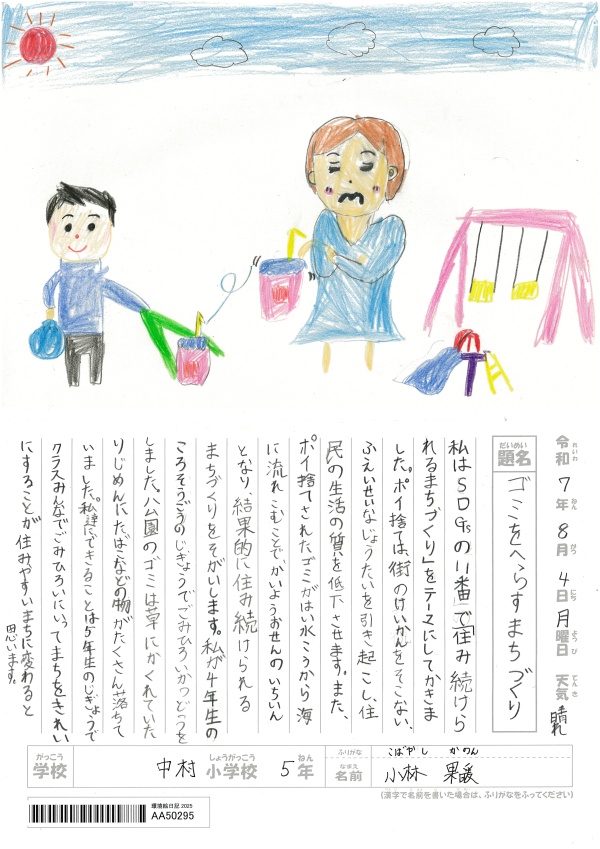 令和 7年 8月 4日 月曜日 天気 晴れ
題名 ゴミをへらすまちづくり
私はSDGsの11番「住み続けら
れるまちづくり」をテーマにしてかきま
した。ポイ捨ては、街のけいかんをそこない、
ふえいせいなじょうたいを引き起こし、住
民の生活の質を低下させます。また、
ポイ捨てされたゴミがはい水こうから海
に流れこむことでかいようおせんのいちいん
となり、結果的に住み続けられる
まちづくりをそがいします。私が4年生の
ころそうごうのじぎょうでごみひろいかつどうを
しました。公園のゴミは草にかくれていた
りじめんにたばこなどの物がたくさん落ちて
いました。私達にできることは5年生のじぎょうで
クラスみんなでごみひろいにいってまちをきれい
にすることが住みやすいまちに変わると
思います。
学校 中村 小学校 5年
ふりがな こばやし かのん
名前 小林 果暖
(漢字で名前を書いた場合は、ふりがなをふってください)
環境絵日記 2025
AA50295